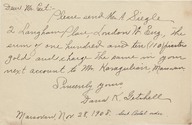 Dear Mr. Peet:-
Please send Mr. A. Siegle
2 Langham Place London W. Eng. the
sum of one hundred and ten (110) piastres
gold and charge the same in your
next account to Mr. Karagulian Marsovan
Yours sincerely
Dana K. Getchell
Marsovan, Nov. 28, 1908.